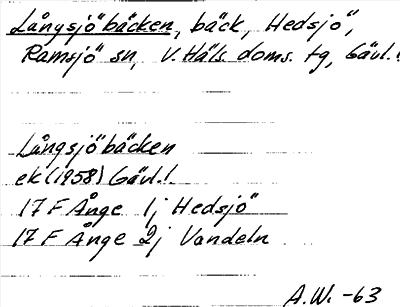 Långsjöbäcken, bäck, Hedsjö,
Ramsjö sn, V. Häls. doms. tg, Gävl. l.
Långsjöbäcken
ek (1958) Gävl. l.
17 F Ånge 1j Hedsjö
17 F Ånge 2j Vandeln
A.W. -63